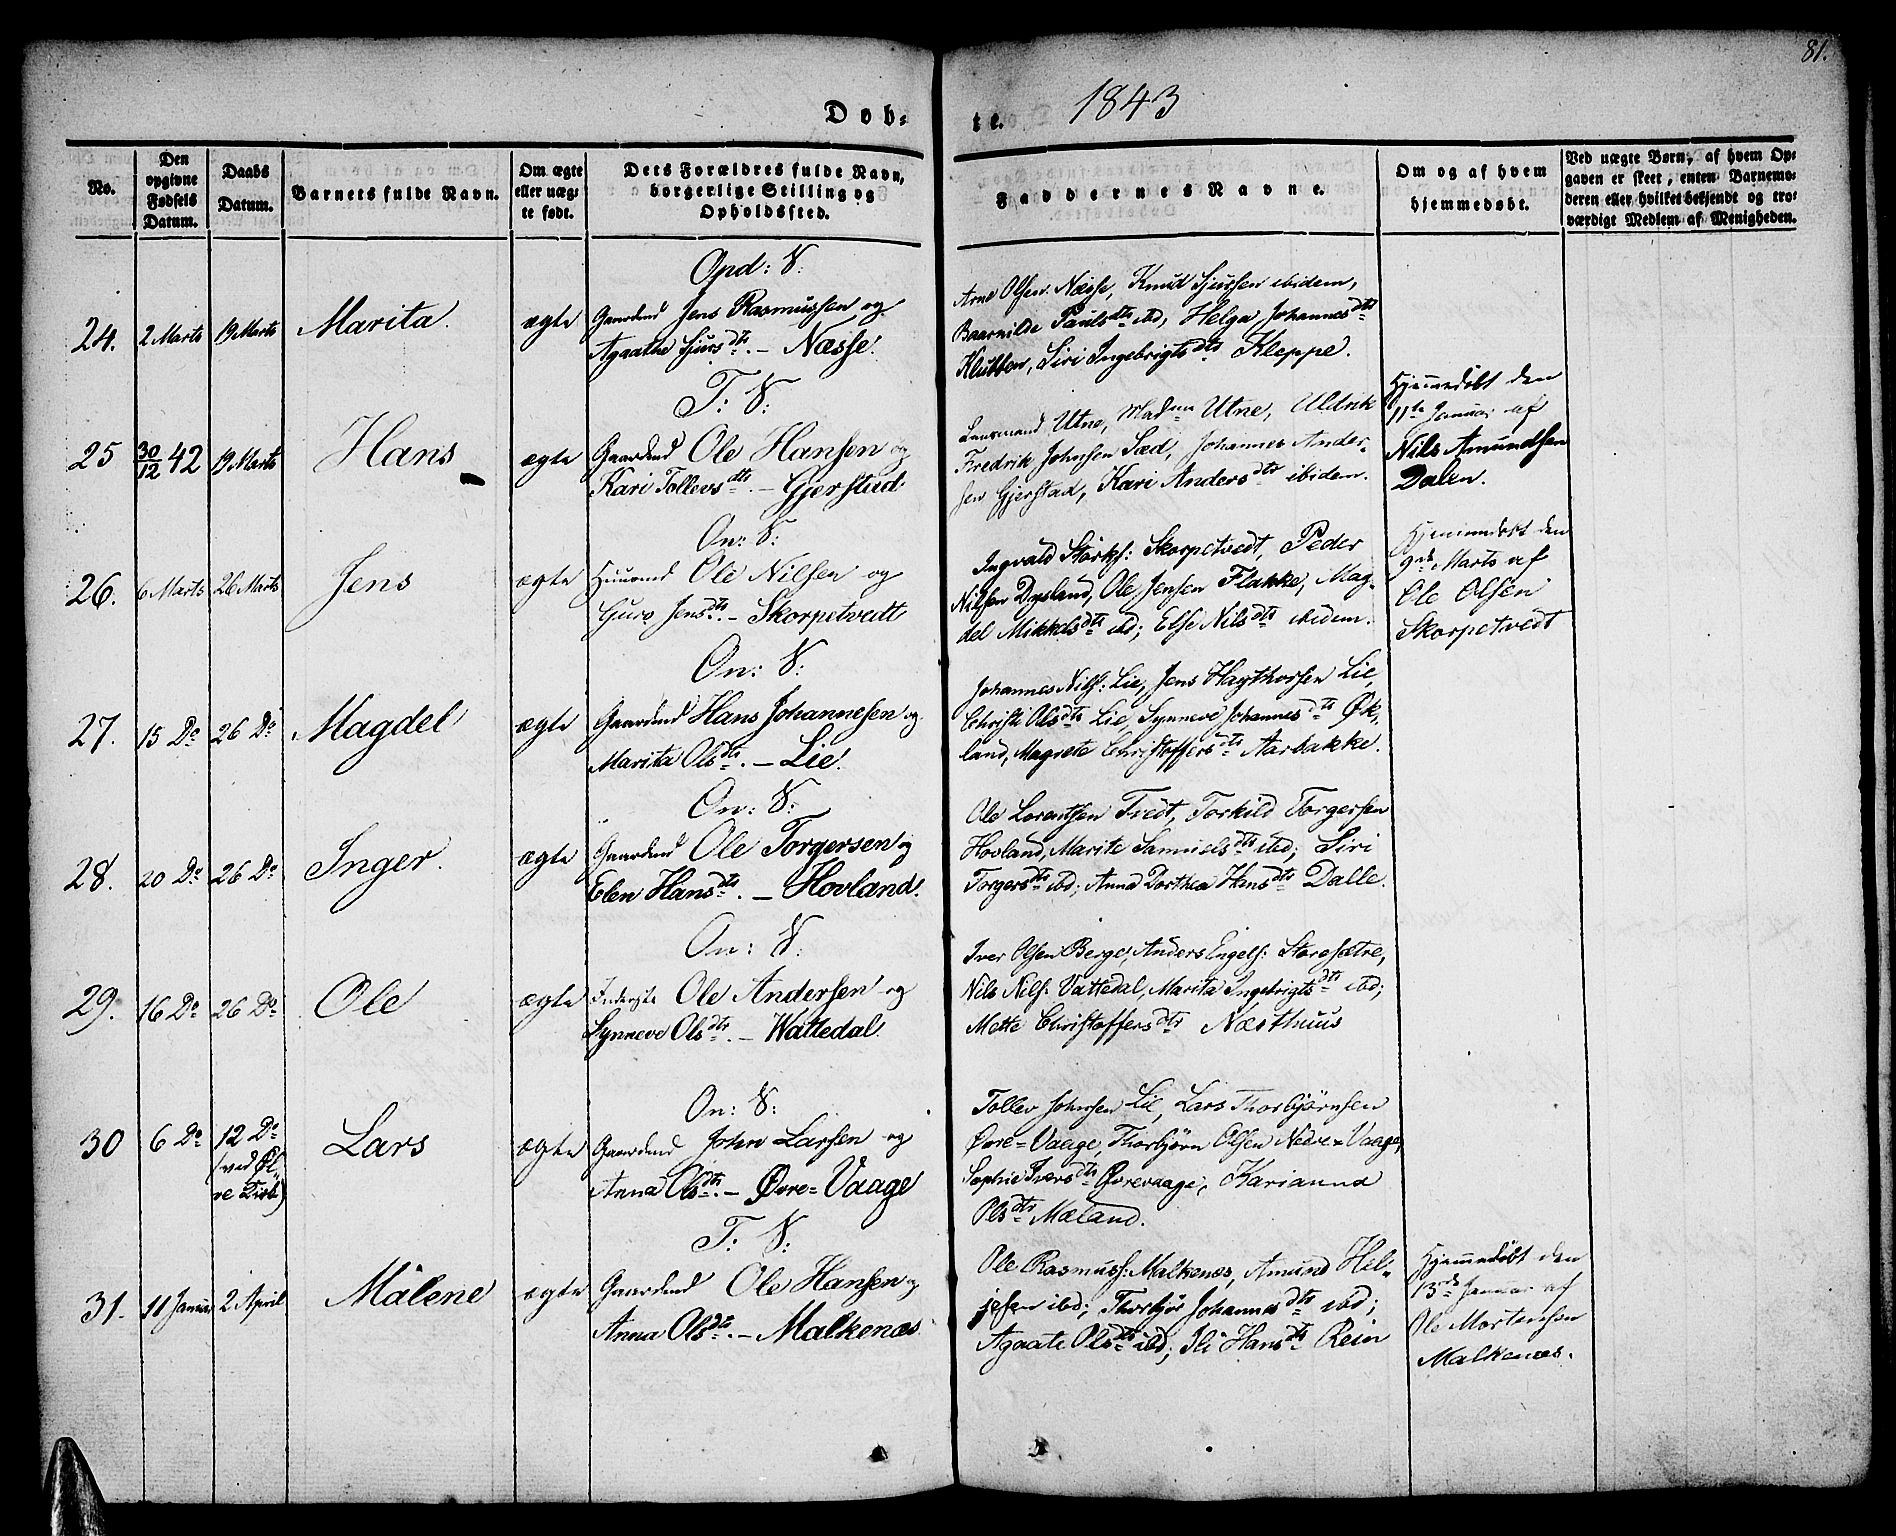 81.
Døb-
te.
1843
No.
Den opgivne Fødsels Datum.
Daabs Datum.
Barnets fulde Navn.
Om ægte eller uægte født.
Dets Forældres fulde Navn, borgerlige Stilling og Opholdsted.
Faddernes Navne.
Om og af hvem hjemmedøbt.
Ved uægte Børn, af hvem Opgaven er skeet, enten Barnemoderen eller hvilket bekjendt og troværdigt Medlem af Menigheden.
Opd: V:
24. 2 Marts 19 Marts Marita. ægte Gaardmd Jens Rasmussen og
Agaathe Sjursdtr. – Næsse.
Arne Olsen Næsse, Knud Sjursen ibidem,
Baarnilde Paulsdtr ibd, Helga Johannesdtr
Klubben, Siri Ingebrigtsdtr Kleppe.
T: V:
25 30/12 42 19 Marts Hans ægte Gaardmd Ole Hansen og
Kari Tollevsdtr. – Gjerstad.
Lensmand Utne, Madme Utne, Uldrik
Fredrik Johnsen Sæd, Johannes Ander-
sen Gjerstad, Kari Andersdtr ibidem.
Hjemmedøbt den
11te Januar af
Nils Amundsen
Dalen.
On: V:
26. 6 Marts 26 Marts Jens ægte Huusmd Ole Nilsen og
Guro Jensdtr. – Skorpetvedt
Ingvald Størks: Skorpetvedt, Peder
Nilsen Dysland, Ole Jensen Flakke, Mag-
del Mikkelsdtr ibd; Else Nilsdtr ibidem.
Hjemmedøbt den
9de Marts af
Ole Olsen
Skorpetvedt
On: V:
27. 15 Do 26 Do Magdel ægte Gaardmd Hans Johannesen og
Marita Olsdtr. – Lie.
Johannes Nils: Lie, Jens Hagthorsen Lie,
Christi Olsdtr Lie, Synneve Johannesdtr Øk-
land, Magrete Christoffersdtr Aarbakke.
On: V:
28. 20 Do 26 Do Inger. ægte Gaardmd Ole Torgersen og
Elen Hansdtr. – Hovland.
Ole Lorentsen Tvedt, Torkild Torgersen
Hovland, Marite Samuelsdtr ibd; Siri
Torgersdtr ibd; Anna Dorthea Hansdtr Dalle.
On: V:
29. 16 Do 26 Do Ole ægte Inderste Ole Andersen og
Synneve Olsdtr. – Wattedal.
Iver Olsen Berge, Anders Engels: Storesætre,
Nils Nils: Vattedal, Marita Ingebrigtsdtr ibd;
Mette Christoffersdtr Næsthuus
On: V:
30 6 Do 12 Do Lars ægte Gaardmd John Larsen og
(ved Øl-
ve Kirke)
Anna Olsdtr. – Øvre=Vaage
Tollev Johnsen Lie, Lars Thorbjørnsen
Øvre=Vaage, Thorbjørn Olsen Nedre=Vaage,
Sophie Iversdtr Øvrevaage, Karianna
Olsdtr Mæland.
T: V:
31. 11 Januar 2 April Målene ægte Gaardmd Ole Hansen og
Anna Olsdtr. – Malkenæs
Ole Rasmuss: Malkenæs, Amund Hel-
jesen ibd; Thorbjør Johannesdtr ibd;
Agaate Olsdtr ibd; Ili Hansdtr Rein
Hjemmedøbt den
13de Januar af
Ole Mortensen
Malkenæs.